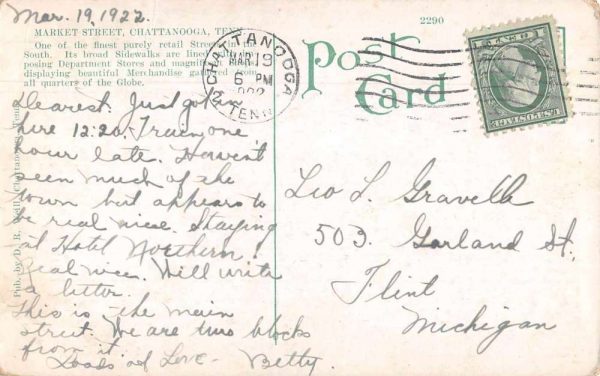 Mar. 19, 1922.
MARKET STREET, CHATTANOOGA, TENN.
One of the finest purely retail Streets in the
South. Its broad Sidewalks are lined with im-
posing Department Stores and magnificent
displaying beautiful Merchandise gathered from
all quarters of the Globe.
2290
Post
Card
CHATTANOOGA
MAR 19
6 PM
TENN.
U.S. POSTAGE
Dearest: Just got in
here 12:20. Train one
hour late. Haven't
seen much of the
town but appears to
be real nice. Staying
at Hotel Northern.
Real nice. Will write
a letter.
This is the main
street. We are two blocks
from it.
Loads of Love - Betty.
Leo L. Gravelle
503 Garland St.
Flint
Michigan
Chattanooga, Tenn.